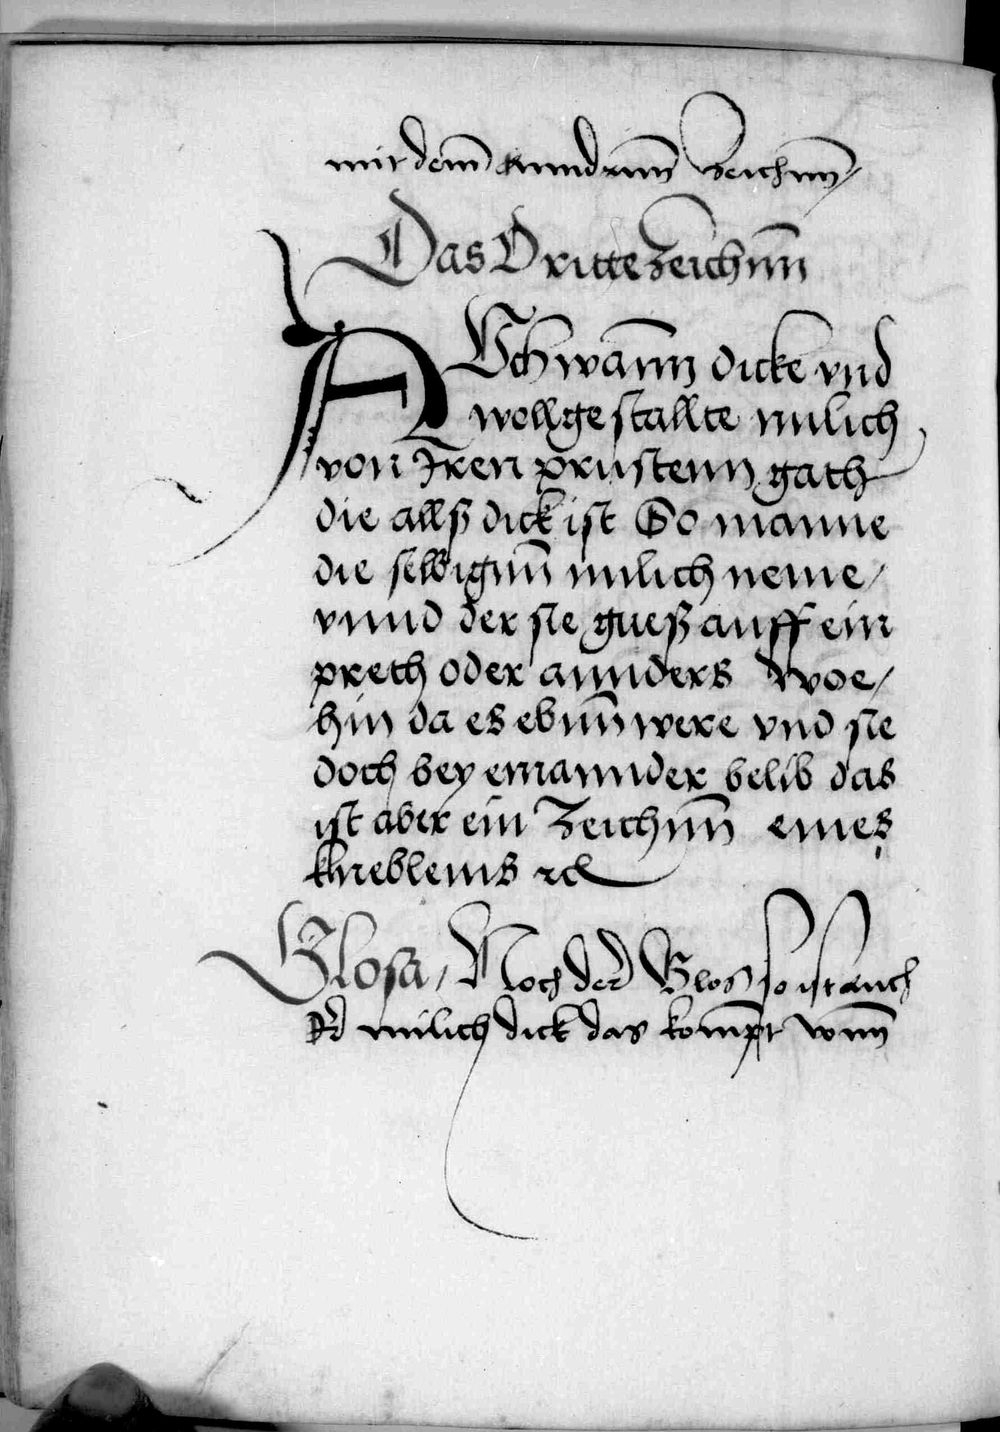 mit dem anndrnn Zeichnn /
Das Dritte Zeichnn
AUch wann dicke vnd
wollgestallte milich
von Jren prustenn gath
die allß dick ist So manne
die selbignn milich neme /
vnnd der sie gueß auff ein
preth oder annders woe /
hin da es ebnn were vnd sie
doch bey einannder belib das
ist aber ein Zeichnn eines
khneblenis rc
Glosa / Noch der Glos so ist auch
die milich dick das kompt vonn